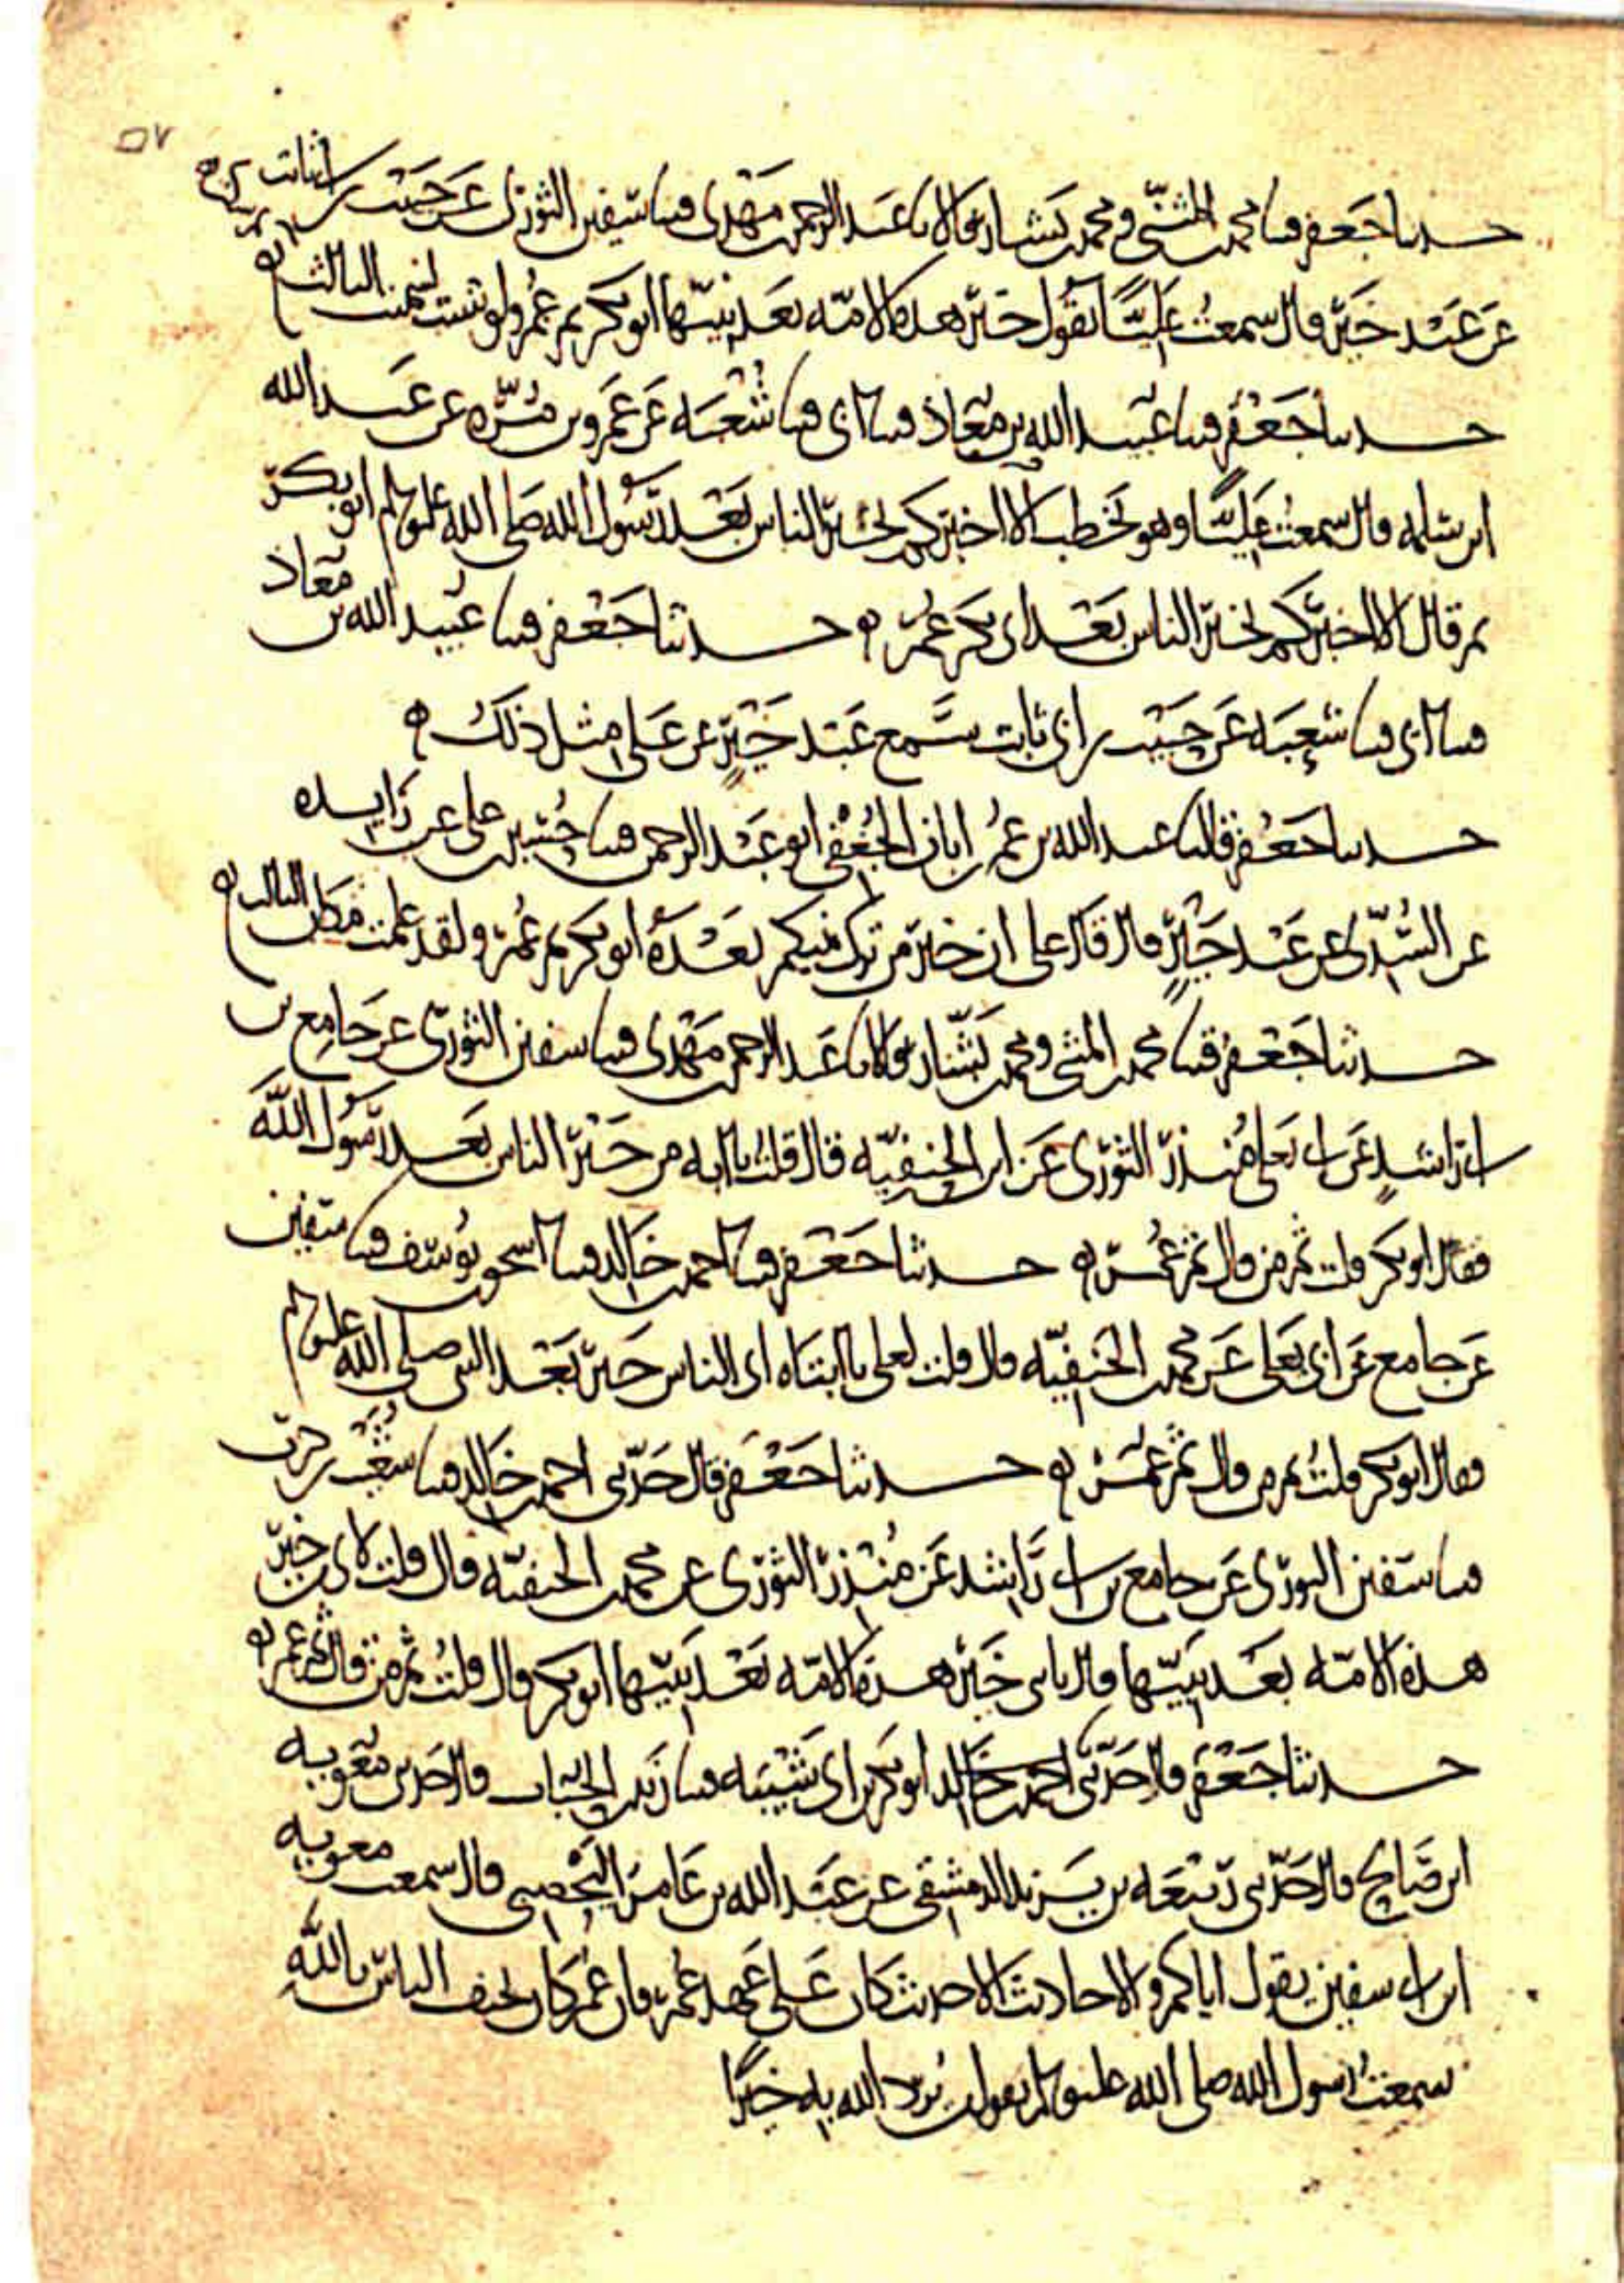 ٥٧
حدثنا جعفر قثنا محمد بن المثنى ومحمد بن بشار قالا نا عبد الرحمن بن مهدي قثنا سفين الثوري عن حبيب بن أبي ثابت
عن عبد خير قال سمعت عليا يقول خير هذه الامة بعد نبيها ابو بكر ثم عمر ولو شئت لسميت الثالث ه
حدثنا جعفر قثنا عبيد الله بن معاذ قثنا ابي قثنا شعبة عن عمرو بن مرة عن عبد الله
ابن سلمة قال سمعت عليا وهو يخطب الا اخبركم بخير الناس بعد رسول الله صلى الله عليه وسلم ابو بكر
ثم قال الا اخبركم بخير الناس بعد ابي بكر عمر ه حدثنا جعفر قثنا عبيد الله بن معاذ
قثنا ابي قثنا شعبة عن حبيب بن ابي ثابت سمع عبد خير عن علي مثل ذلك ه
حدثنا جعفر قال نا عبد الله بن عمر بن ابان الجعفي ابو عبد الرحمن قثنا حسين بن علي عن زايدة
عن السدي عن عبد خير قال قال علي ان خير من ترك نبيكم بعده ابو بكر ثم عمر ولقد علمت مكان الثالث ه
حدثنا جعفر قثنا محمد بن المثنى ومحمد بن بشار قالا نا عبد الرحمن بن مهدي قثنا سفين الثوري عن جامع بن
ابي راشد عن ابي يعلى منذر الثوري عن ابن الحنفية قال قلت يا ابه من خير الناس بعد رسول الله
فقال ابو بكر قلت ثم من قال ثم عمر ه حدثنا جعفر قثنا احمد بن خالد قثنا اسحق بن يوسف قثنا سفين
عن جامع عن ابي يعلى عن محمد بن الحنفية قال قلت لعلي يا ابتاه اي الناس خير بعد النبي صلى الله عليه وسلم
فقال ابو بكر قلت ثم من قال ثم عمر ه حدثنا جعفر قال حدثني احمد بن خالد قثنا شعيب بن حرب
قثنا سفين الثوري عن جامع بن ابي راشد عن منذر الثوري عن محمد بن الحنفية قال قلت لابي من خير
هذه الامة بعد نبيها قال يا بني خير هذه الامة بعد نبيها ابو بكر قال قلت ثم من قال ثم عمر ه
حدثنا جعفر قال حدثني احمد بن خالد ابو بكر بن ابي شيبة قثنا زيد بن الحباب قال حدثني معوية
ابن صالح قال حدثني ربيعة بن يزيد الدمشقي عن عبد الله بن عامر اليحصبي قال سمعت معوية
ابن ابي سفين يقول اياكم والاحاديث الا حديث كان على عهد عمر فان عمر كان يخيف الناس بالله
سمعت رسول الله صلى الله عليه وسلم يقول من يرد الله به خيرا